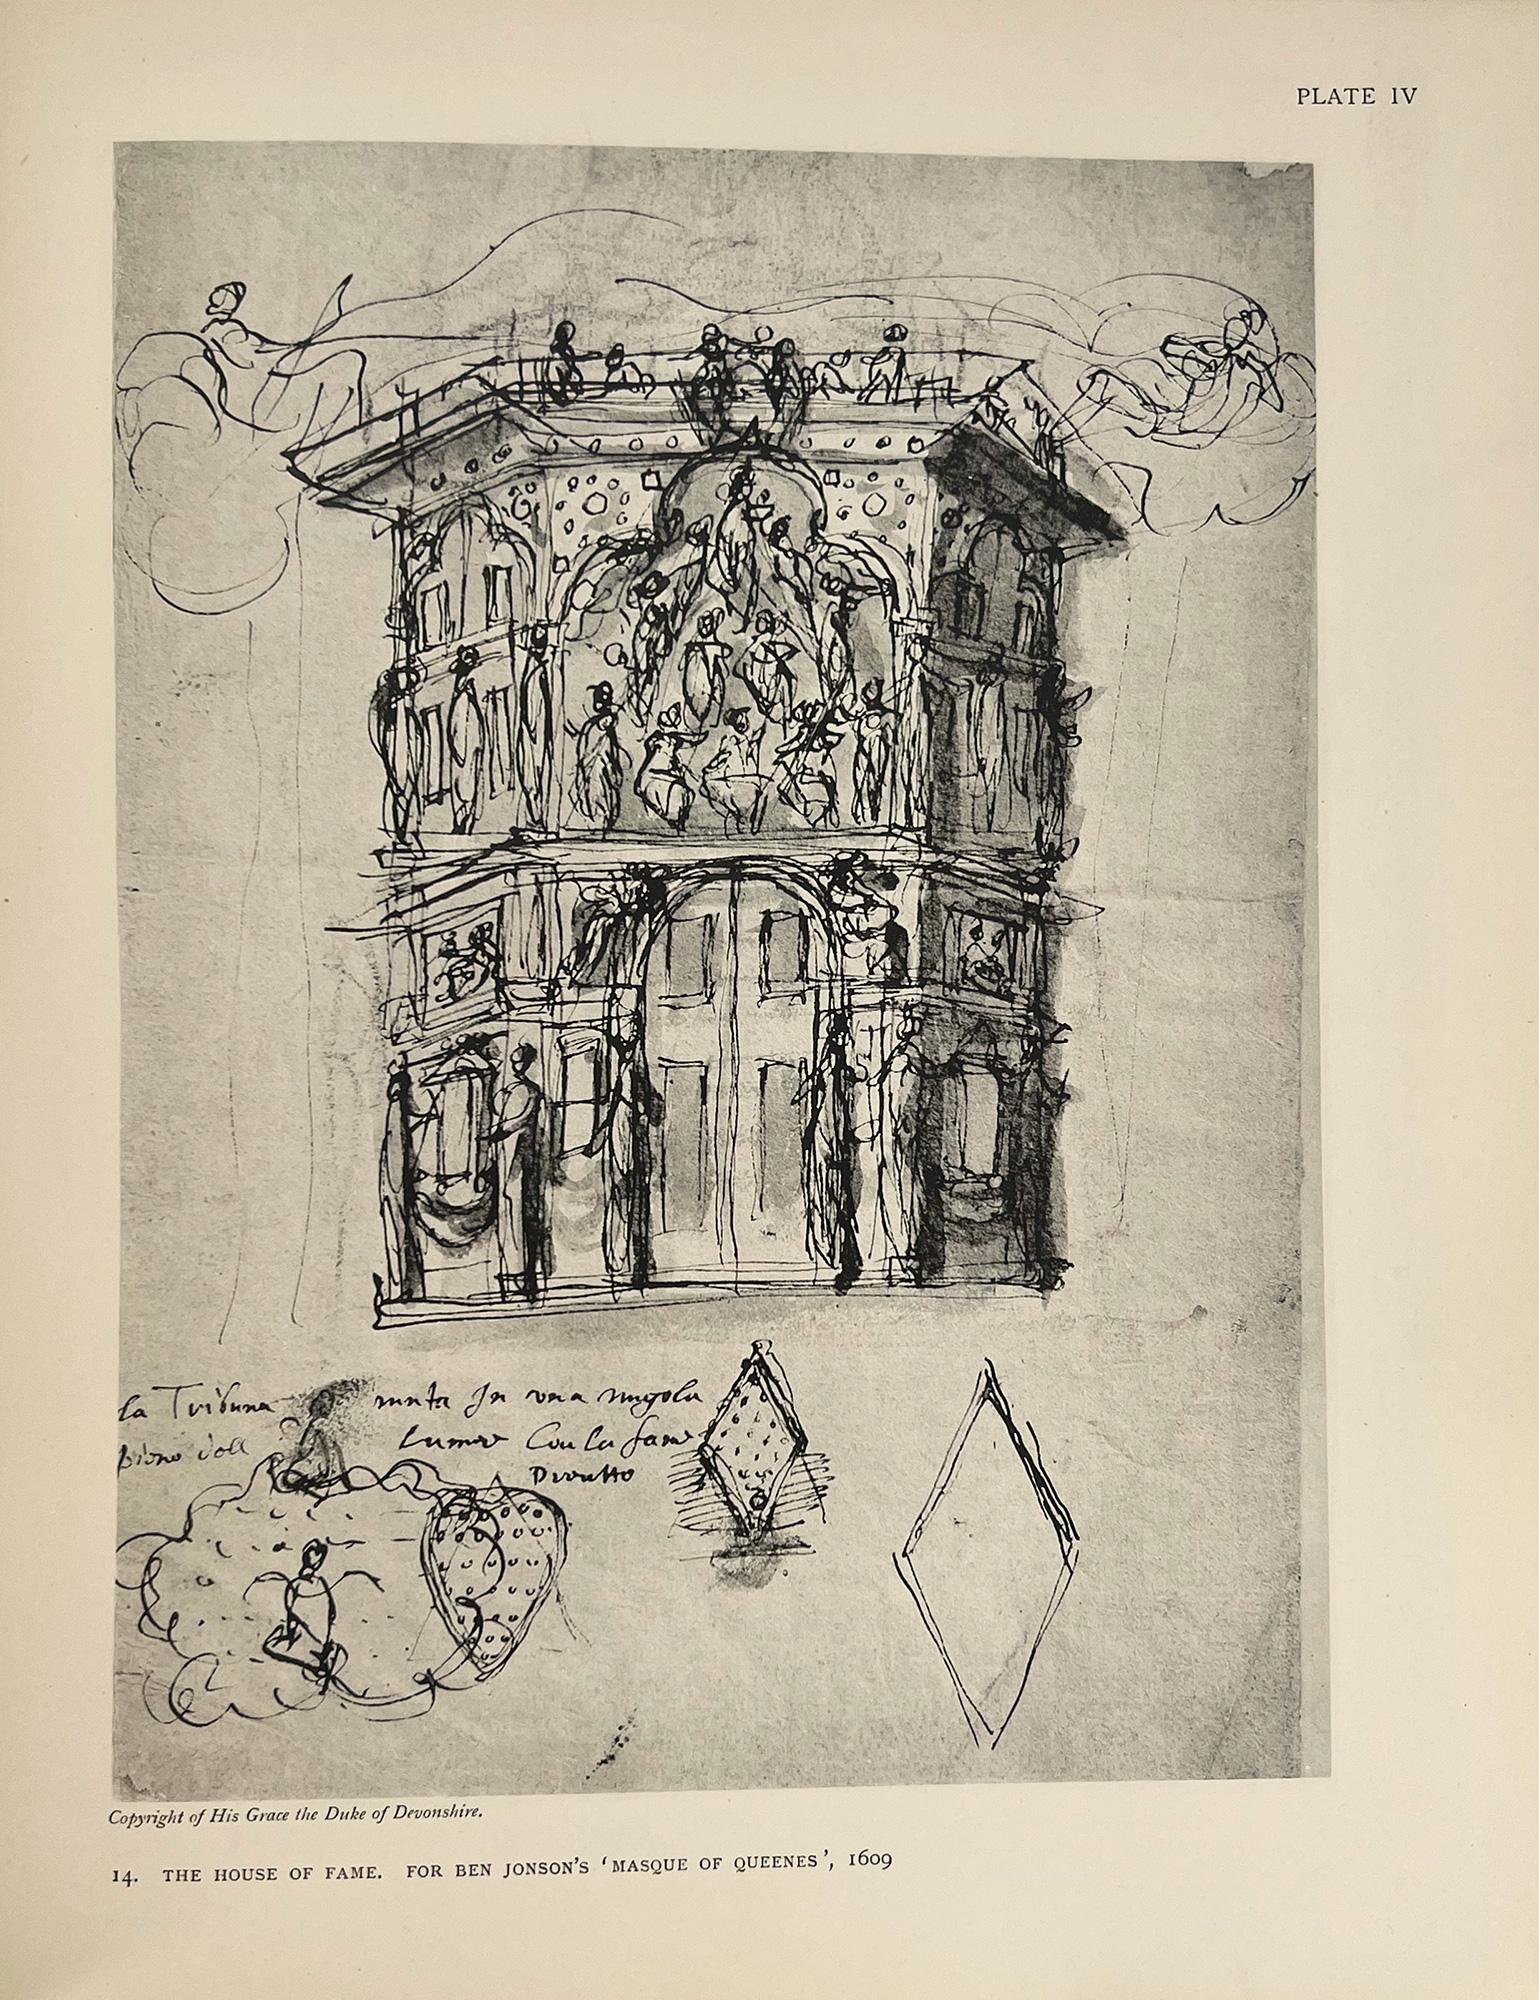 PLATE IV
la Tribuna muta In una nugola
piena dell lumer Con la fame
Copyright of His Grace the Duke of Devonshire.
14. THE HOUSE OF FAME. FOR BEN JONSON'S 'MASQUE OF QUEENES', 1609